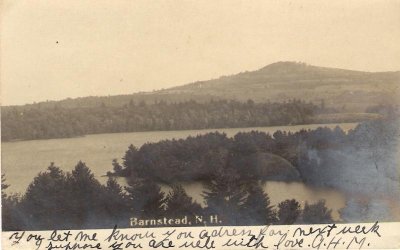 Barnstead, N. H.
you let me know you adress for next week
I suppose you are well with love. A.H.M.